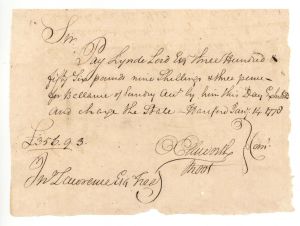 Sir
Pay Lynde Lord Esq three Hundred
fifty Six pounds nine Shillings & three pence
for Ballance of Sundry Acct by him this Day Exhibited
and charge the State - Hartford Jany 14 1778
£356.9.3.
OEllsworth Comtt
Jno Lawrence Esq Trea